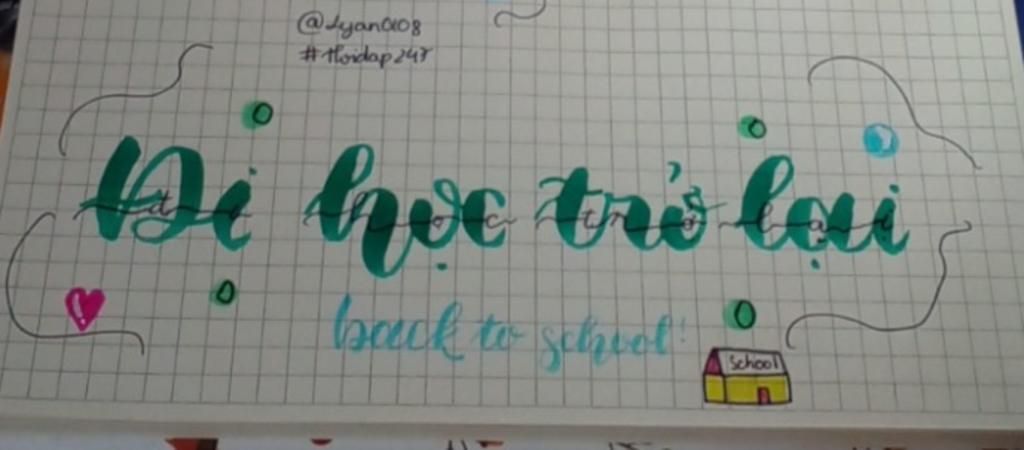 @Lyan0108
#Hoidap247
Đi học trở lại
back to school!
School